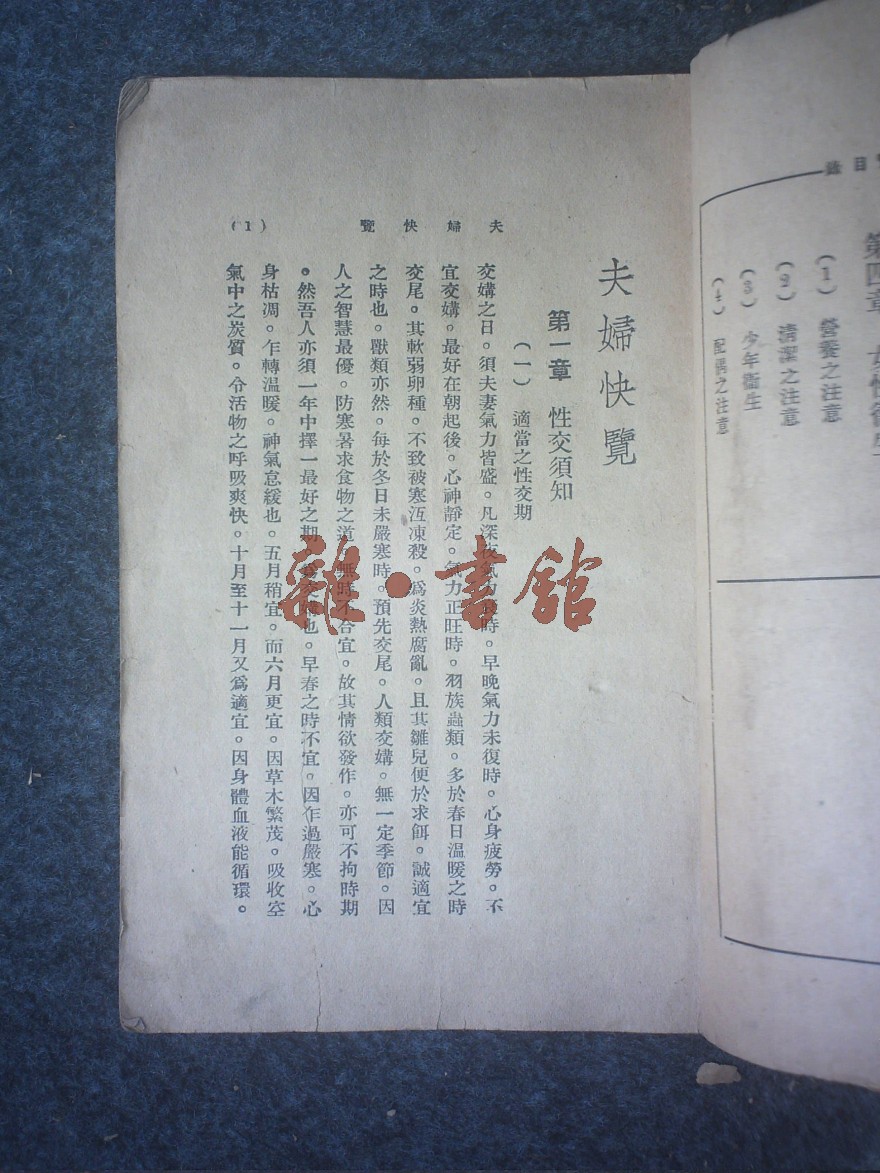 目錄
第四章
(1) 營養之注意
(2) 清潔之注意
(3) 少年衞生
(4) 配偶之注意
夫婦快覽
(1)
夫婦快覽
第一章 性交須知
(一) 適當之性交期
交媾之日。須夫妻氣力皆盛。凡深夜氣力時。早晚氣力未復時。心身疲勞。不
宜交媾。最好在朝起後。心神靜定。氣力正旺時。羽族蟲類。多於春日温暖之時
交尾。其軟弱卵種。不致被寒沍凍殺。爲炎熱腐亂。且其雛兒便於求餌。誠適宜
之時也。獸類亦然。每於冬日未嚴寒時。預先交尾。人類交媾。無一定季節。因
人之智慧最優。防寒暑求食物之道。無時不合宜。故其情欲發作。亦可不拘時期
。然吾人亦須一年中擇一最好之期。爲交媾也。早春之時不宜。因乍過嚴寒。心
身枯凋。乍轉温暖。神氣怠緩也。五月稍宜。而六月更宜。因草木繁茂。吸收空
氣中之炭質。令活物之呼吸爽快。十月至十一月又爲適宜。因身體血液能循環。
雜·書館